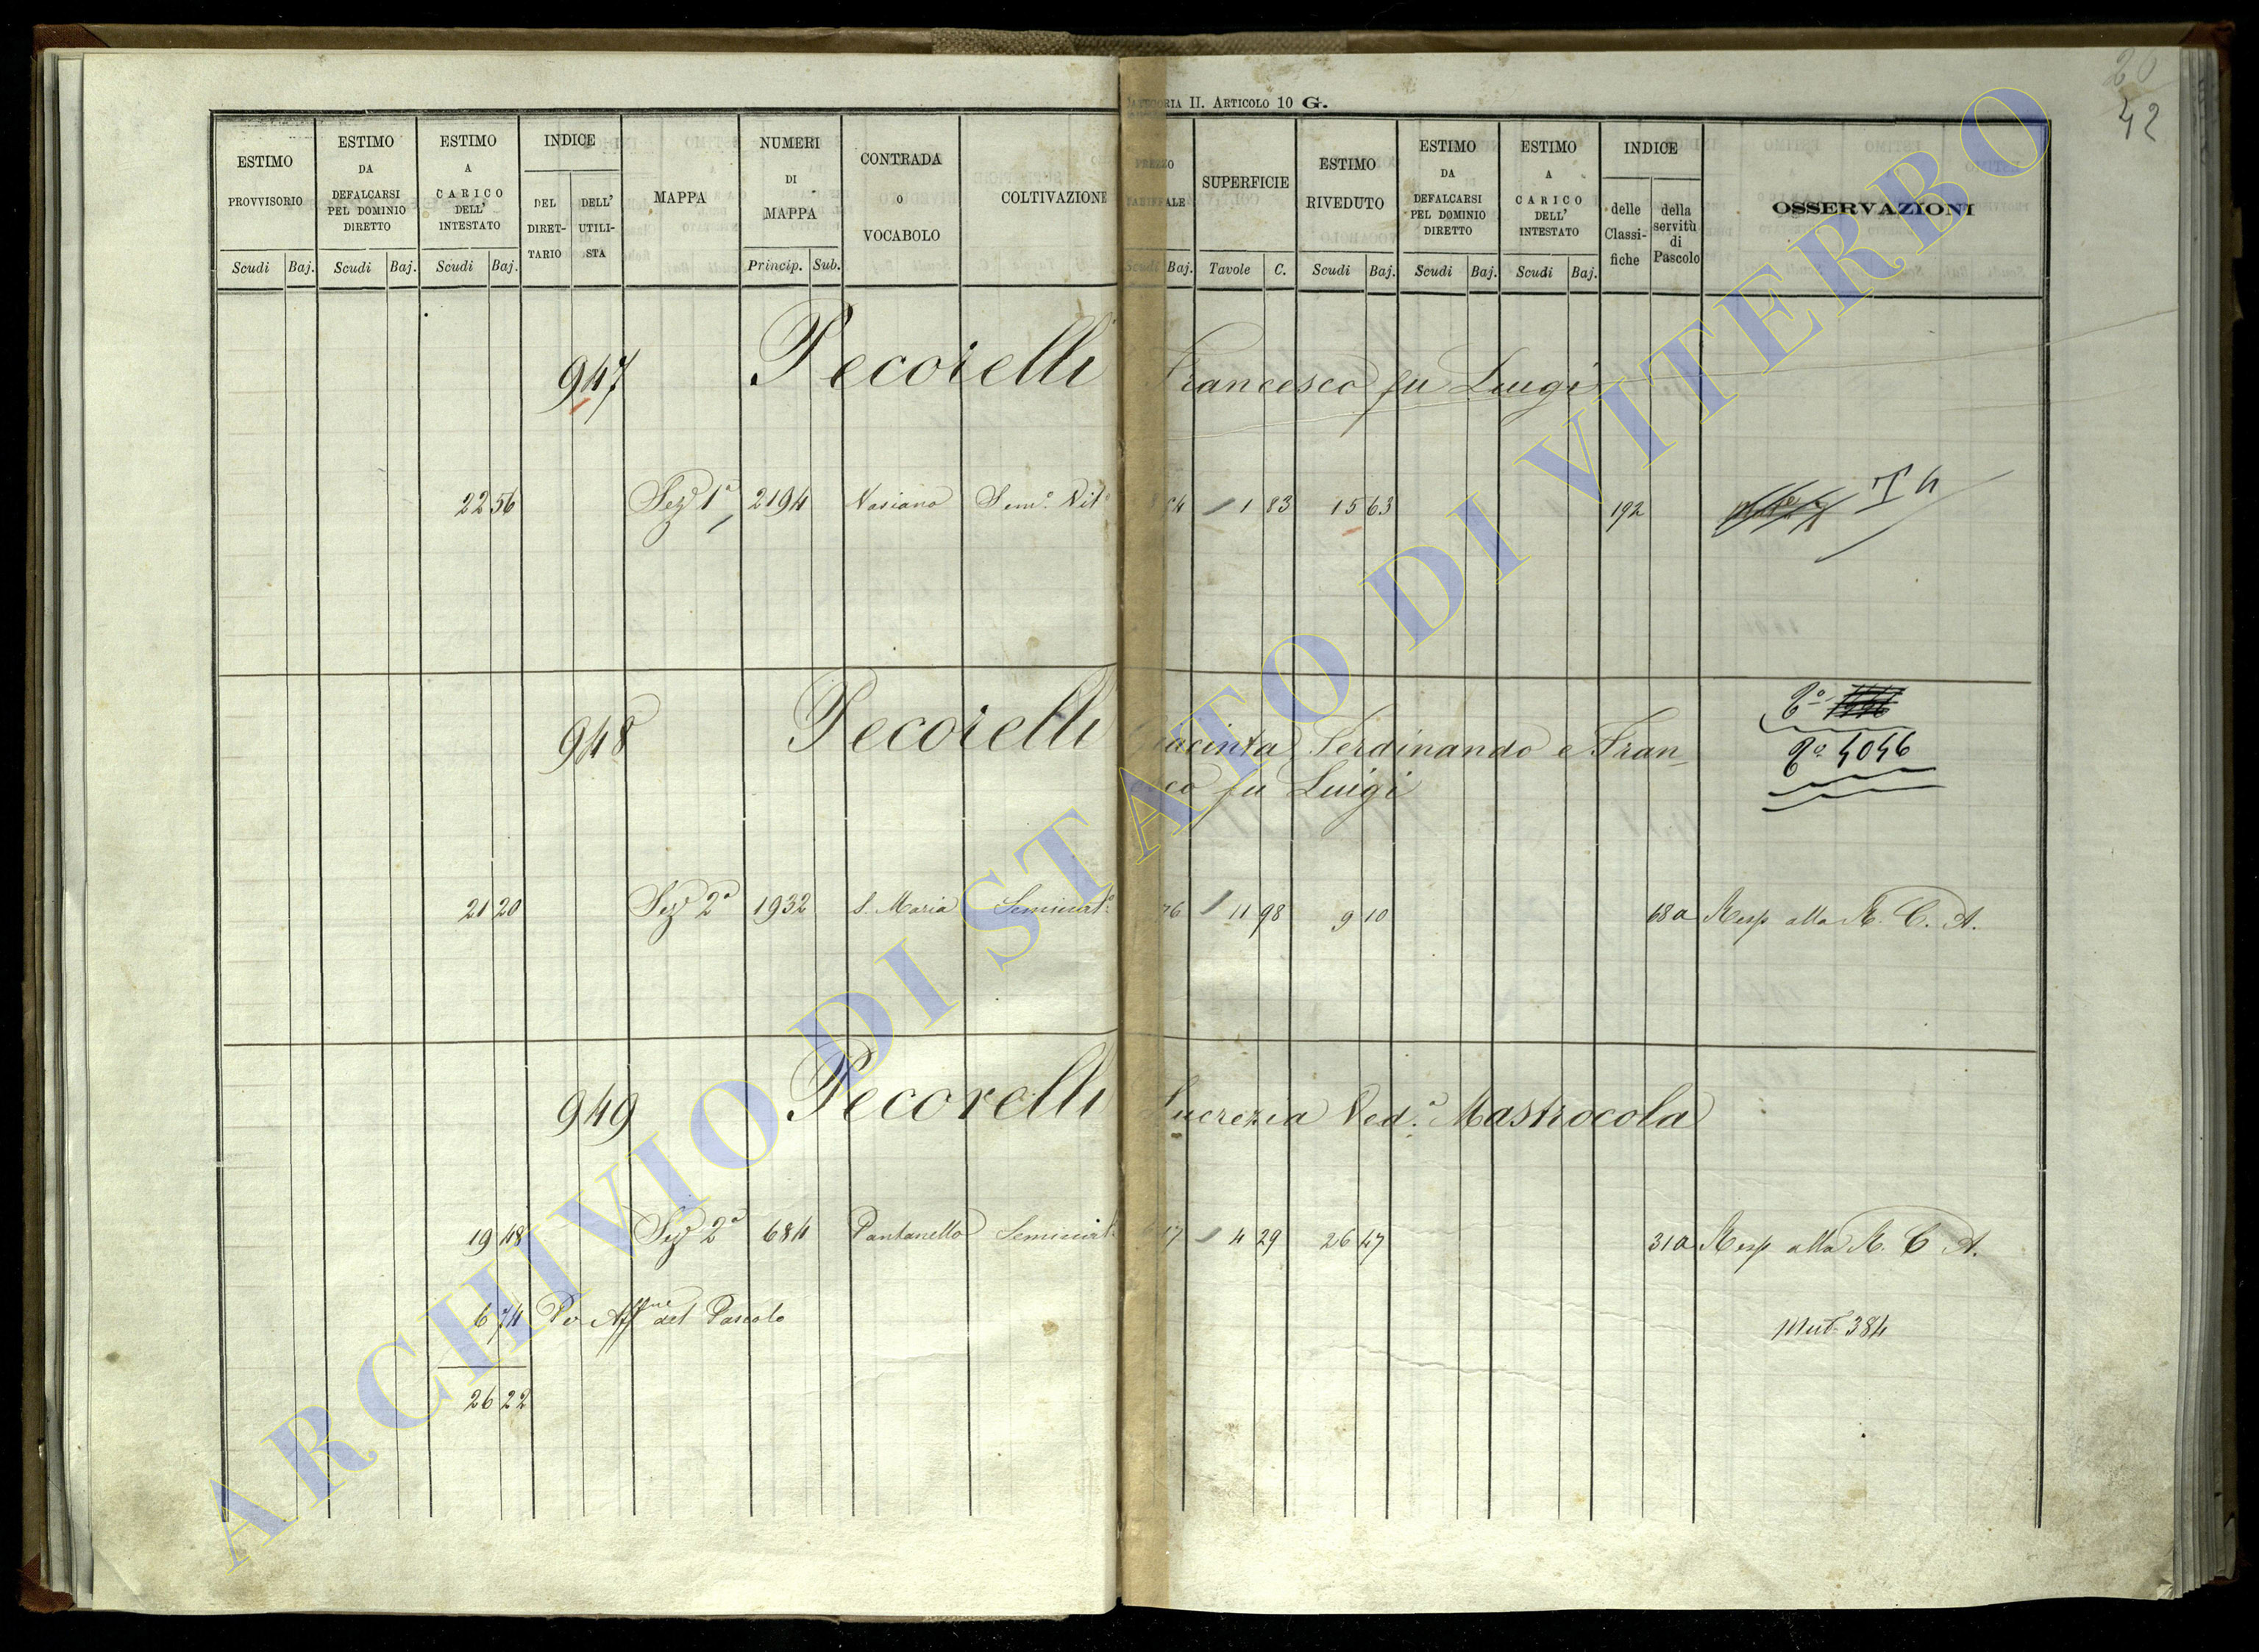 20
42
CATEGORIA II. ARTICOLO 10 G.
ESTIMO PROVVISORIO
ESTIMO DA DEFALCARSI PEL DOMINIO DIRETTO
ESTIMO A CARICO DELL' INTESTATO
INDICE
DEL DIRET-TARIO
DELL' UTILI-STA
MAPPA
NUMERI DI MAPPA
CONTRADA O VOCABOLO
COLTIVAZIONE
PREZZO TARIFFALE
SUPERFICIE
ESTIMO RIVEDUTO
ESTIMO DA DEFALCARSI PEL DOMINIO DIRETTO
ESTIMO A CARICO DELL' INTESTATO
INDICE
delle Classi-fiche
della servitù di Pascolo
OSSERVAZIONI
Scudi Baj. Scudi Baj. Scudi Baj. Princip. Sub. Scudi Baj. Tavole C. Scudi Baj. Scudi Baj. Scudi Baj.
947 Pecorelli Francesco fu Luigi
22 56 Sez 1ª 2194 Nasiano Sem.º Vit.º 1 83 15 63 192
948 Pecorelli Giacinta, Ferdinando e Fran-
cesco fu Luigi
4046
21 20 Sez 2ª 1932 S. Maria Seminat.º 76 11 98 9 10 68a Resp alla R. C. A.
949 Pecorelli Lucrezia Ved.ª Mastrocola
19 48 Sez 2ª 684 Pantanello Seminat.º 17 4 29 26 47 31a Resp alla R. C. A.
6 74 Per Aff.ne del Pascolo Mut. 384
26 22
ARCHIVIO DI STATO DI VITERBO